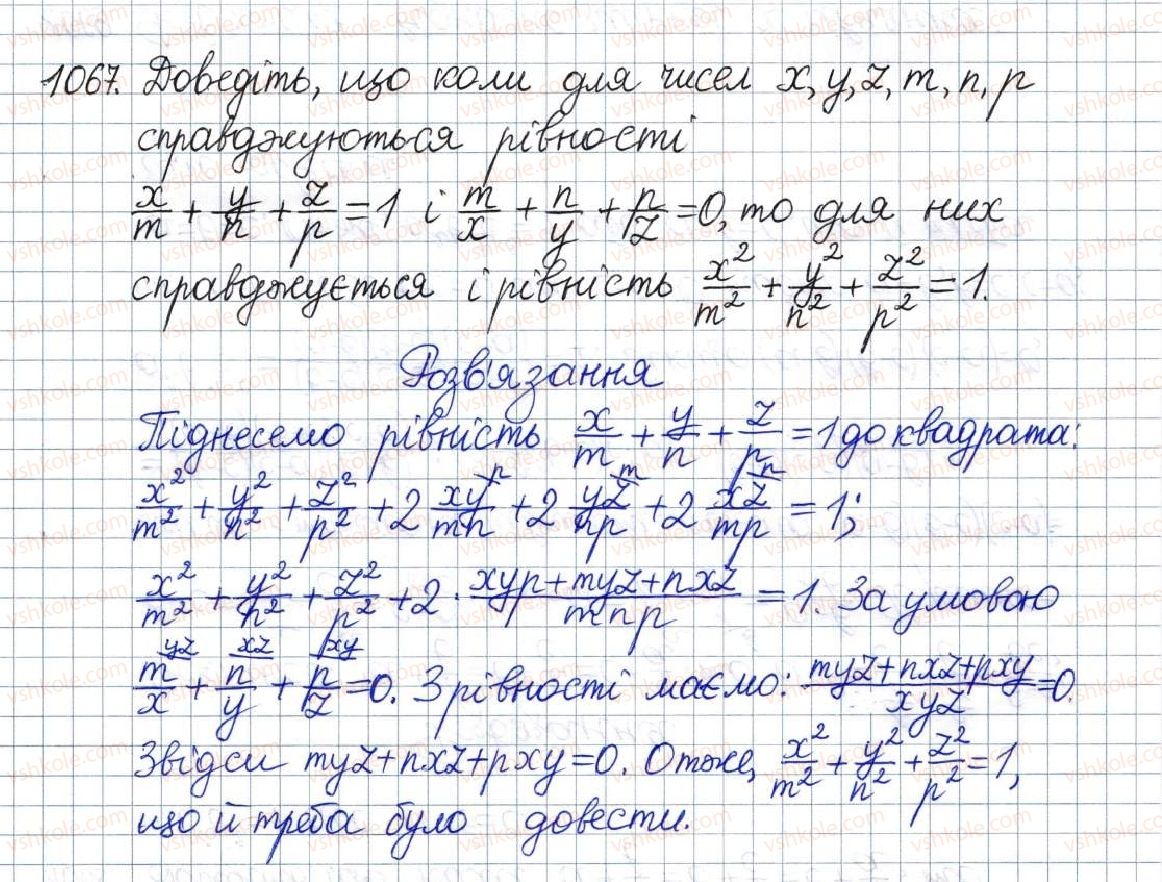 1067. Доведіть, що коли для чисел x, y, z, m, n, p
справджуються рівності
x/m + y/n + z/p = 1 і m/x + n/y + p/z = 0, то для них
справджується і рівність x²/m² + y²/n² + z²/p² = 1.
Розв'язання
Піднесемо рівність x/m + y/n + z/p = 1 до квадрата:
x²/m² + y²/n² + z²/p² + 2 xy/mn ^p + 2 yz/np ^m + 2 xz/mp ^n = 1;
x²/m² + y²/n² + z²/p² + 2 · (xyp + myz + nxz)/mnp = 1. За умовою
m/x ^yz + n/y ^xz + p/z ^xy = 0. З рівності маємо: (myz + nxz + pxy)/xyz = 0.
Звідси myz + nxz + pxy = 0. Отже, x²/m² + y²/n² + z²/p² = 1,
що й треба було довести.
vshkole.com